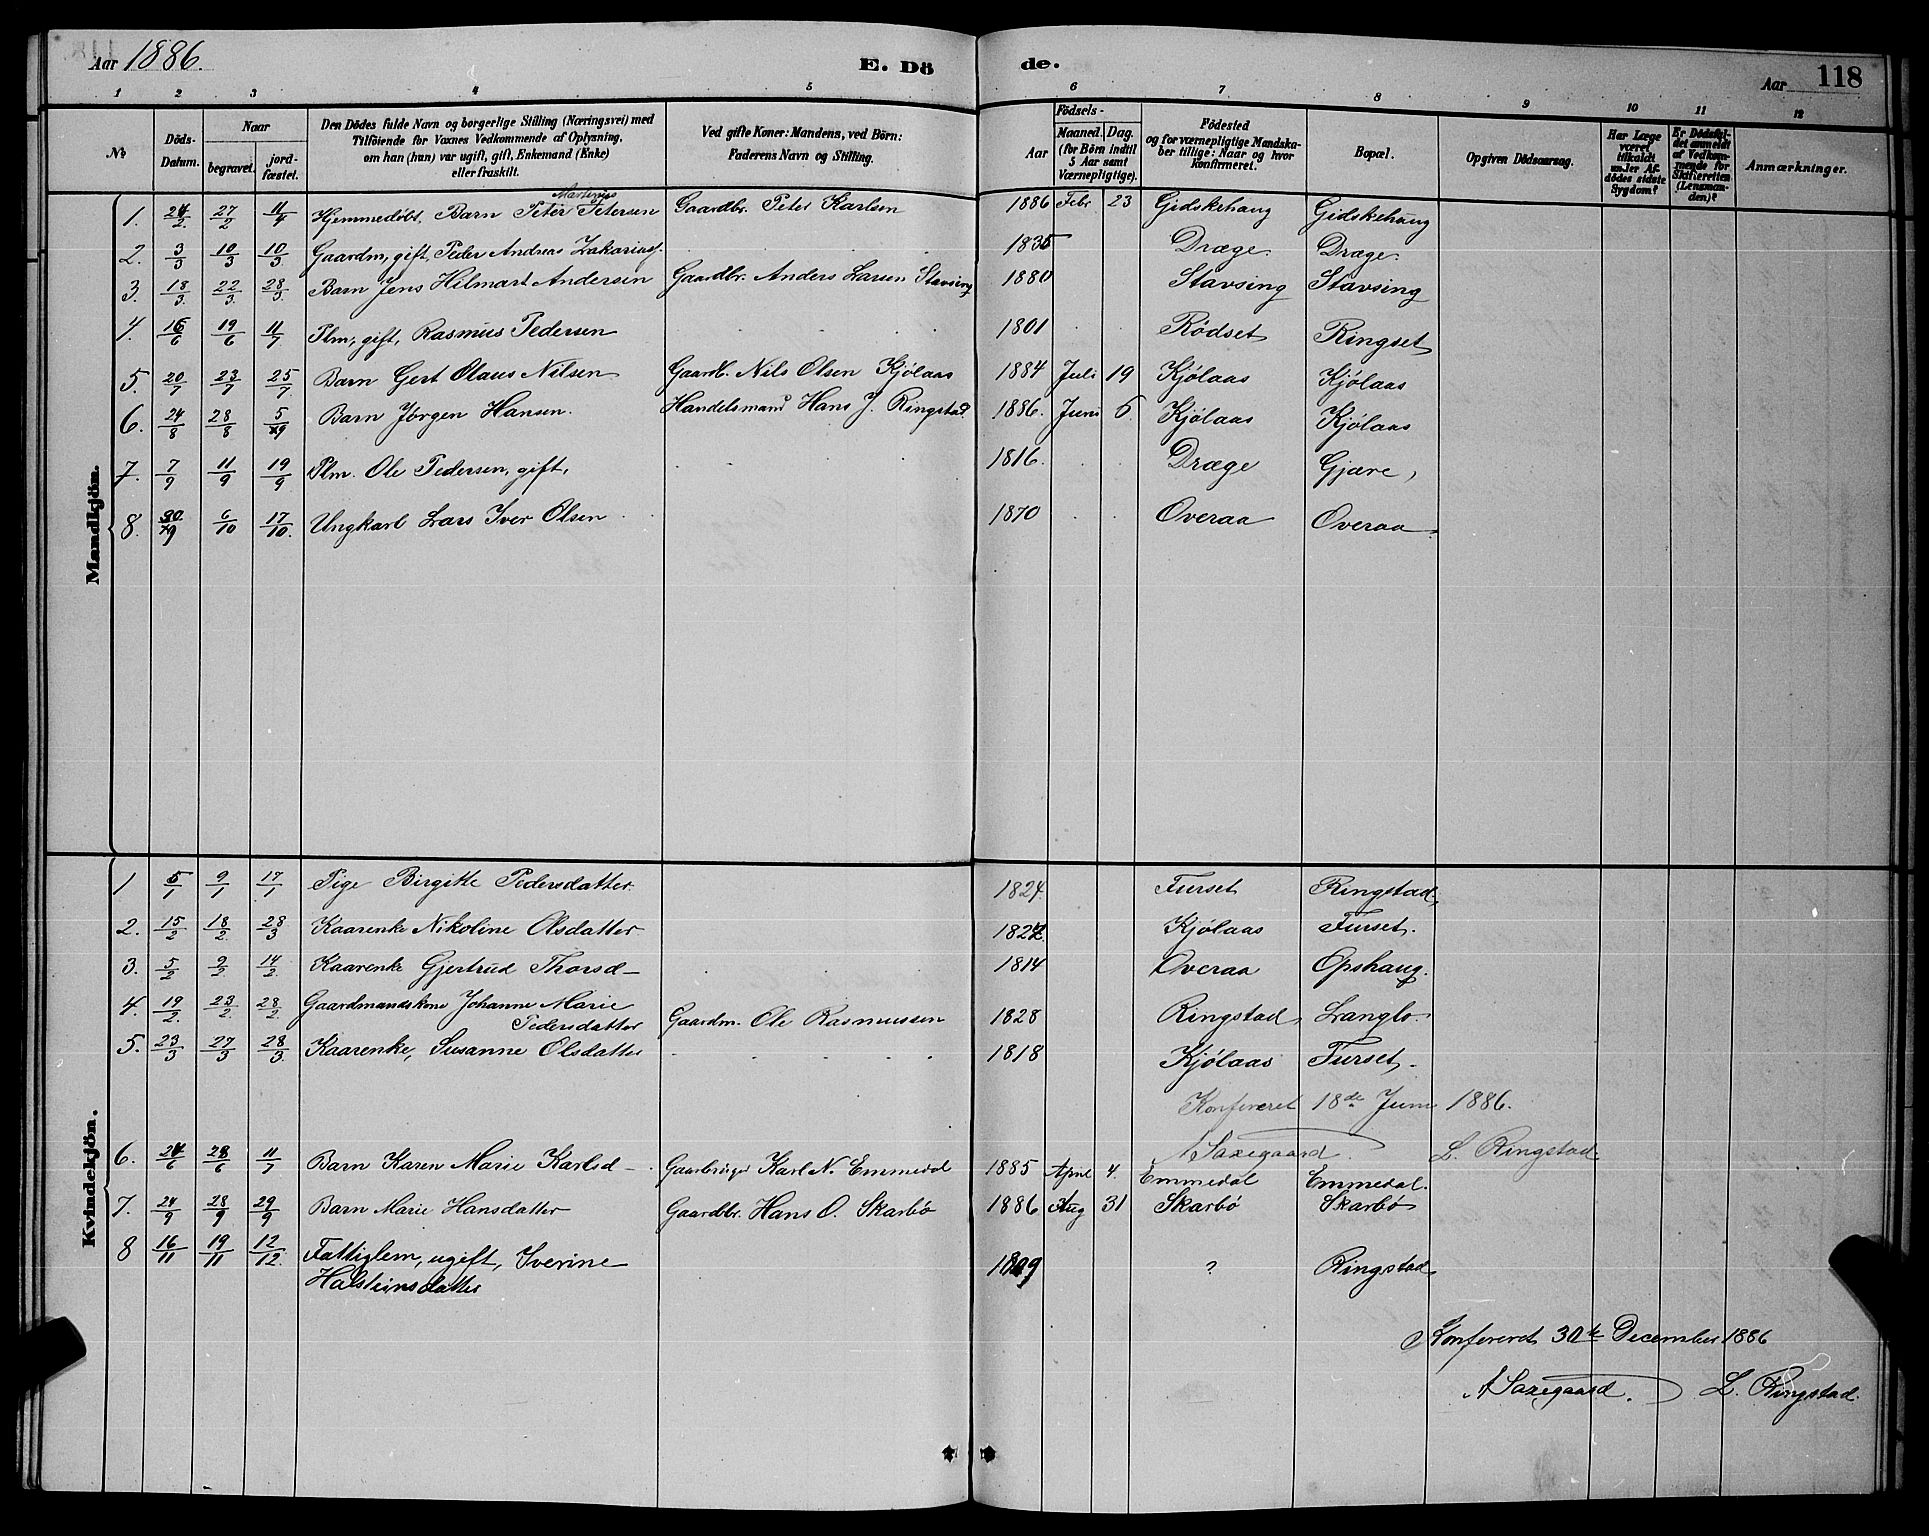 Aar 1886. E. Dö de. Aar 118
1 2 3 4 5 6 7 8 9 10 11 12
No
Döds-Datum.
Naar
begravet. jordfæstet.
Den Dödes fulde Navn og borgerlige Stilling (Næringsvei) med
Tilföiende for Voxnes Vedkommende af Oplysning,
om han (hun) var ugift, gift, Enkemand (Enke)
eller fraskilt.
Ved gifte Koner: Mandens, ved Börn:
Faderens Navn og Stilling.
Aar
Födsels-
Maaned. Dag.
(for Börn indtil
5 Aar samt
Værnepligtige).
Födested
og for værnepligtige Mandska-
ber tillige: Naar og hvor
konfirmeret.
Bopæl.
Opgiven Dödsaarsag.
Har Læge
været
tilkaldt
under Af-
dödes sidste
Sygdom?
Er Dödsfal-
det anmeldt
af Vedkom-
mende for
Skifteretten
(Lensman-
den)?
Anmærkninger.
Mandkjön.
1. 24/2 27/2 11/4 Hjemmedøbt Barn Peter Martinus Petersen Gaardbr. Peter Karlsen 1886 Febr. 23 Gidskehaug Gidskehaug
2. 3/3 10/3 10/3 Gaardm, gift, Peder Andreas Zakarias. 1835 Dræge Dræge
3. 18/3 22/3 28/3 Barn Jens Hilmart Andersen Gaardbr. Anders Larsen Stavsing 1880 Stavsing Stavsing
4. 16/6 19/6 11/7 Plm, gift, Rasmus Pedersen 1801 Rødset Ringset
5. 20/7 23/7 25/7 Barn Gert Olaus Nilsen Gaardb. Nils Olsen Kjølaas 1884 Juli 19 Kjølaas Kjølaas
6. 24/8 28/8 5/9 Barn Jørgen Hansen. Handelsmand Hans J. Ringstad 1886. Juni 6. Kjølaas Kjølaas
7. 7/9 11/9 19/9 Plm. Ole Pedersen, gift, 1816. Dræge Gjære,
8. 30/9 6/10 17/10. Ungkarl Lars Iver Olsen 1870 Overaa Overaa
Kvindekjön.
1 5/1 9/1 17/1 Pige Birgitte Pedersdatter 1824. Furset Ringstad,
2. 15/2 18/2 28/3 Kaarenke Nikoline Olsdatter Kjølaas Furset.
3. 5/2 9/2 14/2 Kaarenke Gjertrud Thorsd- 1814 Overaa Opshaug.
4. 19/2 23/2 28/2 Gaardmandskone Johanne Marie
Pedersdatter Gaardm. Ole Rasmussen 1828 Ringstad, Langlo.
5. 23/3 27/3 28/3 Kaarenke, Susanne Olsdatter 1818 Kjølaas Furset.
Konfereret 18de Juni 1886.
A Saxegaard. L. Ringstad.
6. 24/6 28/6 11/7 Barn Karen Marie Karlsd-. Gaarbruger Karl N. Emmedal 1885 April 4. Emmedal Emmedal.
7. 24/9 28/9 29/9 Barn Marie Hansdatter Gaardbr. Hans O. Skarbø 1886 Aug 31 Skarbø Skarbø
8 16/11 19/11 12/12. Fattiglem, ugift, Iverine
Halsteinsdatter ? Ringstad
Konfereret 30te December 1886
A Saxegaard. L. Ringstad.